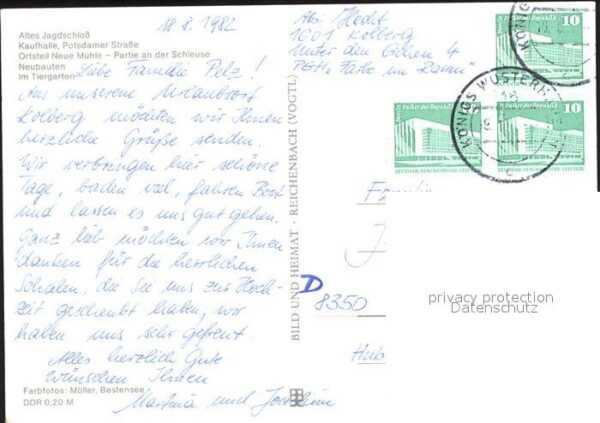 18.8.1982
Altes Jagdschloß
Kaufhalle, Potsdamer Straße
Ortsteil Neue Mühle - Partie an der Schleuse
Neubauten
Im Tiergarten
Liebe Familie Pelz!
Aus unserem Urlaubsort
Kolberg möchten wir Ihnen
herzliche Grüße senden.
Wir verbringen hier schöne
Tage, baden viel, fahren Boot
und lassen es uns gut gehen.
Ganz lieb möchten wir Ihnen
danken für die herrlichen
Schalen, die Sie uns zur Hoch-
zeit geschenkt haben, wir
haben uns sehr gefreut.
Alles herzlich Gute
wünschen Ihnen
Martina und
Farbfotos: Möller, Bestensee
DDR 0,20 M
BILD UND HEIMAT · REICHENBACH (VOGTL)
Abs:
1601 Kolberg
Unter den 4
10
10
KÖNIGS WUSTERH
18
c
Familie
D
8350
privacy protection
Datenschutz